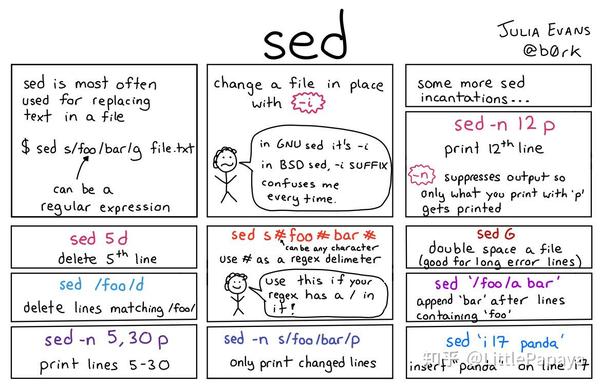 sed
JULIA EVANS
@b0rk
sed is most often
used for replacing
text in a file
$ sed s/foo/bar/g file.txt
can be a
regular expression
change a file in place
with -i
in GNU sed it's -i
in BSD sed, -i SUFFIX
confuses me
every time.
some more sed
incantations...
sed -n 12 p
print 12th line
-n suppresses output so
only what you print with 'p'
gets printed
sed 5 d
delete 5th line
sed /foo/d
delete lines matching /foo/
sed -n 5,30 p
print lines 5-30
sed s#foo#bar#
can be any character
use # as a regex delimeter
use this if your
regex has a / in
it!
sed -n s/foo/bar/p
only print changed lines
sed G
double space a file
(good for long error lines)
sed '/foo/a bar'
append 'bar' after lines
containing 'foo'
sed 'i 17 panda'
insert "panda" on line 17
知乎 @LittlePapaya